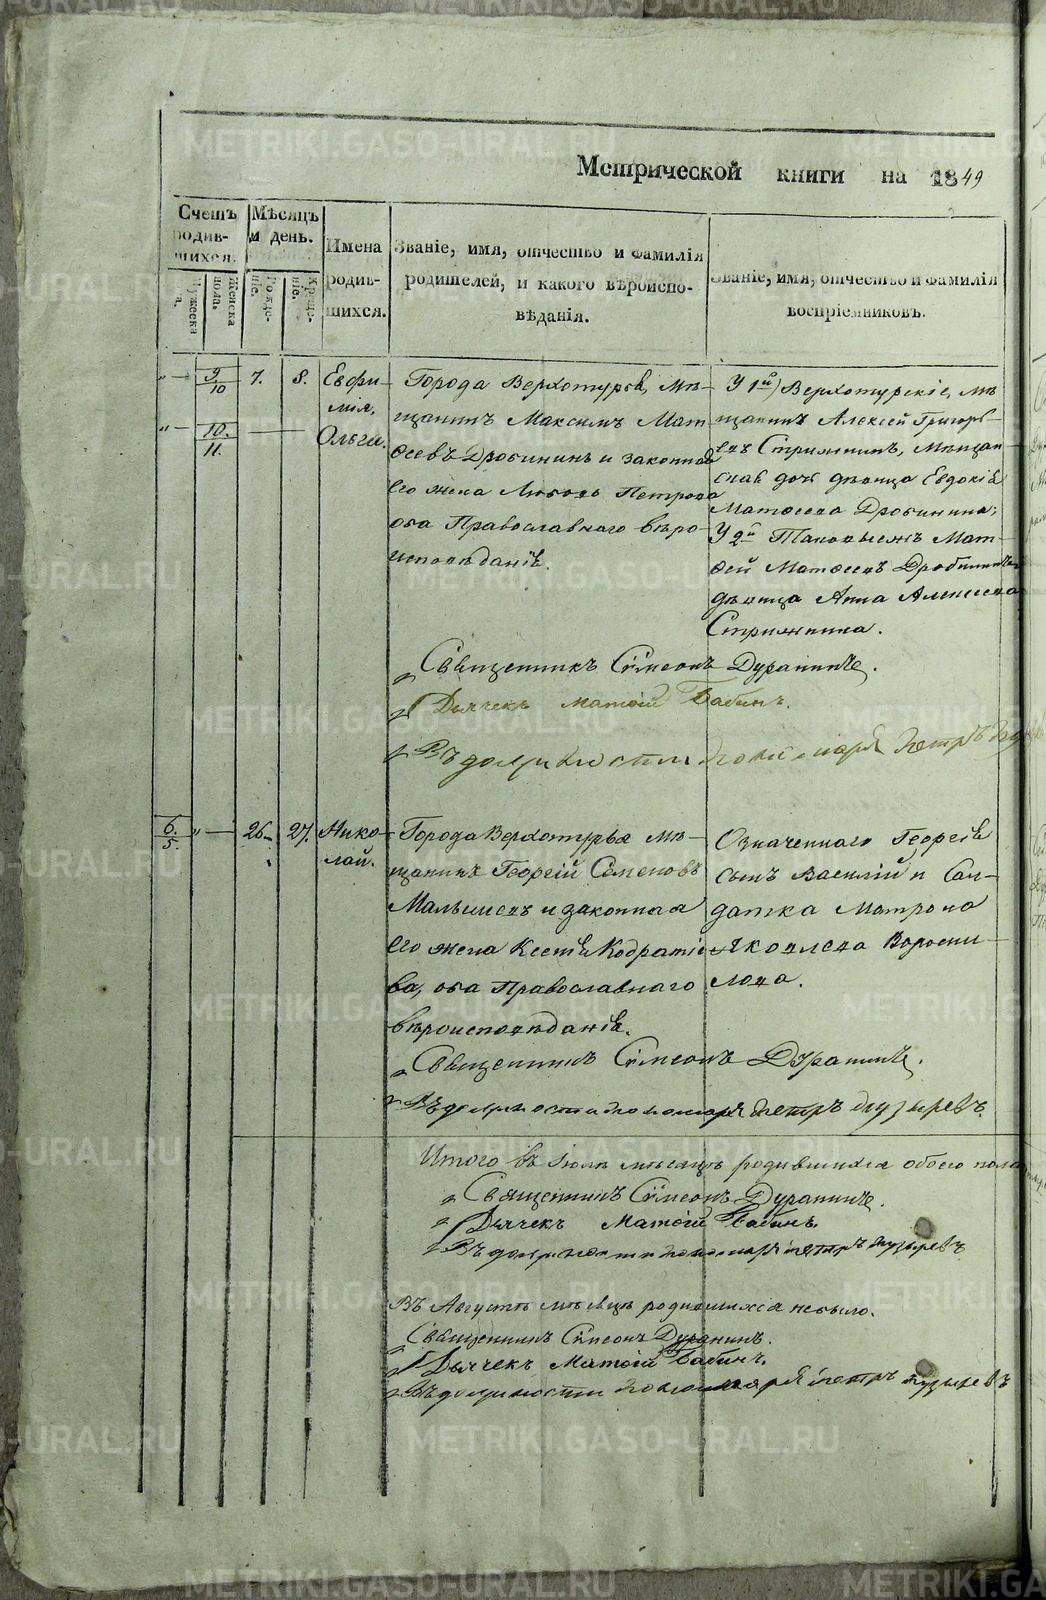 Метрической книги на 1849
Счетъ родившихся.
Мужеска пола.
Женска пола.
Мѣсяцъ и день.
Рожденіе.
Крещеніе.
Имена
родив-
шихся.
Званіе, имя, отчество и фамилія
родителей, и какого вѣроиспо-
вѣданія.
Званіе, имя, отчество и фамилія
воспріемниковъ.
" — 9/10 7. 8. Евфи-
мія.
" — 10./11.
Ольга.
Города Верхотурья, мѣ-
щанинъ Максимъ Мат-
ѳеевъ Дробининъ и законная
его жена Любовь Петрова
оба Православнаго вѣро-
исповѣданія.
У 1й) Верхотурскіе, мѣ-
щанинъ Алексей Григорь-
евъ Стрижкинъ, Мѣщан-
ская дочь дѣвица Евдокія
Матѳеева Дробинина;
У 2й Таковыежъ Мат-
ѳей Матѳеевъ Дробининъ
дѣвица Анна Алексеева
Стрижкина.
Священникъ Сѵмеонъ Дуранинъ.
Дьячекъ Матѳій Бабинъ.
Въ должности пономаря Петръ
6./5. " — 26. 27. Нико-
лай.
Города Верхотурья мѣ-
щанинъ Георгій Семеновъ
Малышевъ и законная
его жена Ксенія Кодратіе-
ва, оба Православнаго
вѣроисповѣданія.
Означеннаго Георгія
сынъ Василій и Сол-
датка Матрона
Яковлева Воросши-
лова.
Священникъ Сѵмеонъ Дуранинъ.
Въ должности пономаря Петръ Пузыревъ.
Итого въ Іюлѣ мѣсяцѣ родившихся обоего пола
Священникъ Сѵмеонъ Дуранинъ.
Дьячекъ Матѳій Бабинъ.
Въ должности пономаря Петръ Пузыревъ
Въ Августѣ мѣсяцѣ родившихся небыло.
Священникъ Сѵмеонъ Дуранинъ.
Дьячекъ Матѳій Бабинъ.
Въ должности пономаря Петръ Пузыревъ